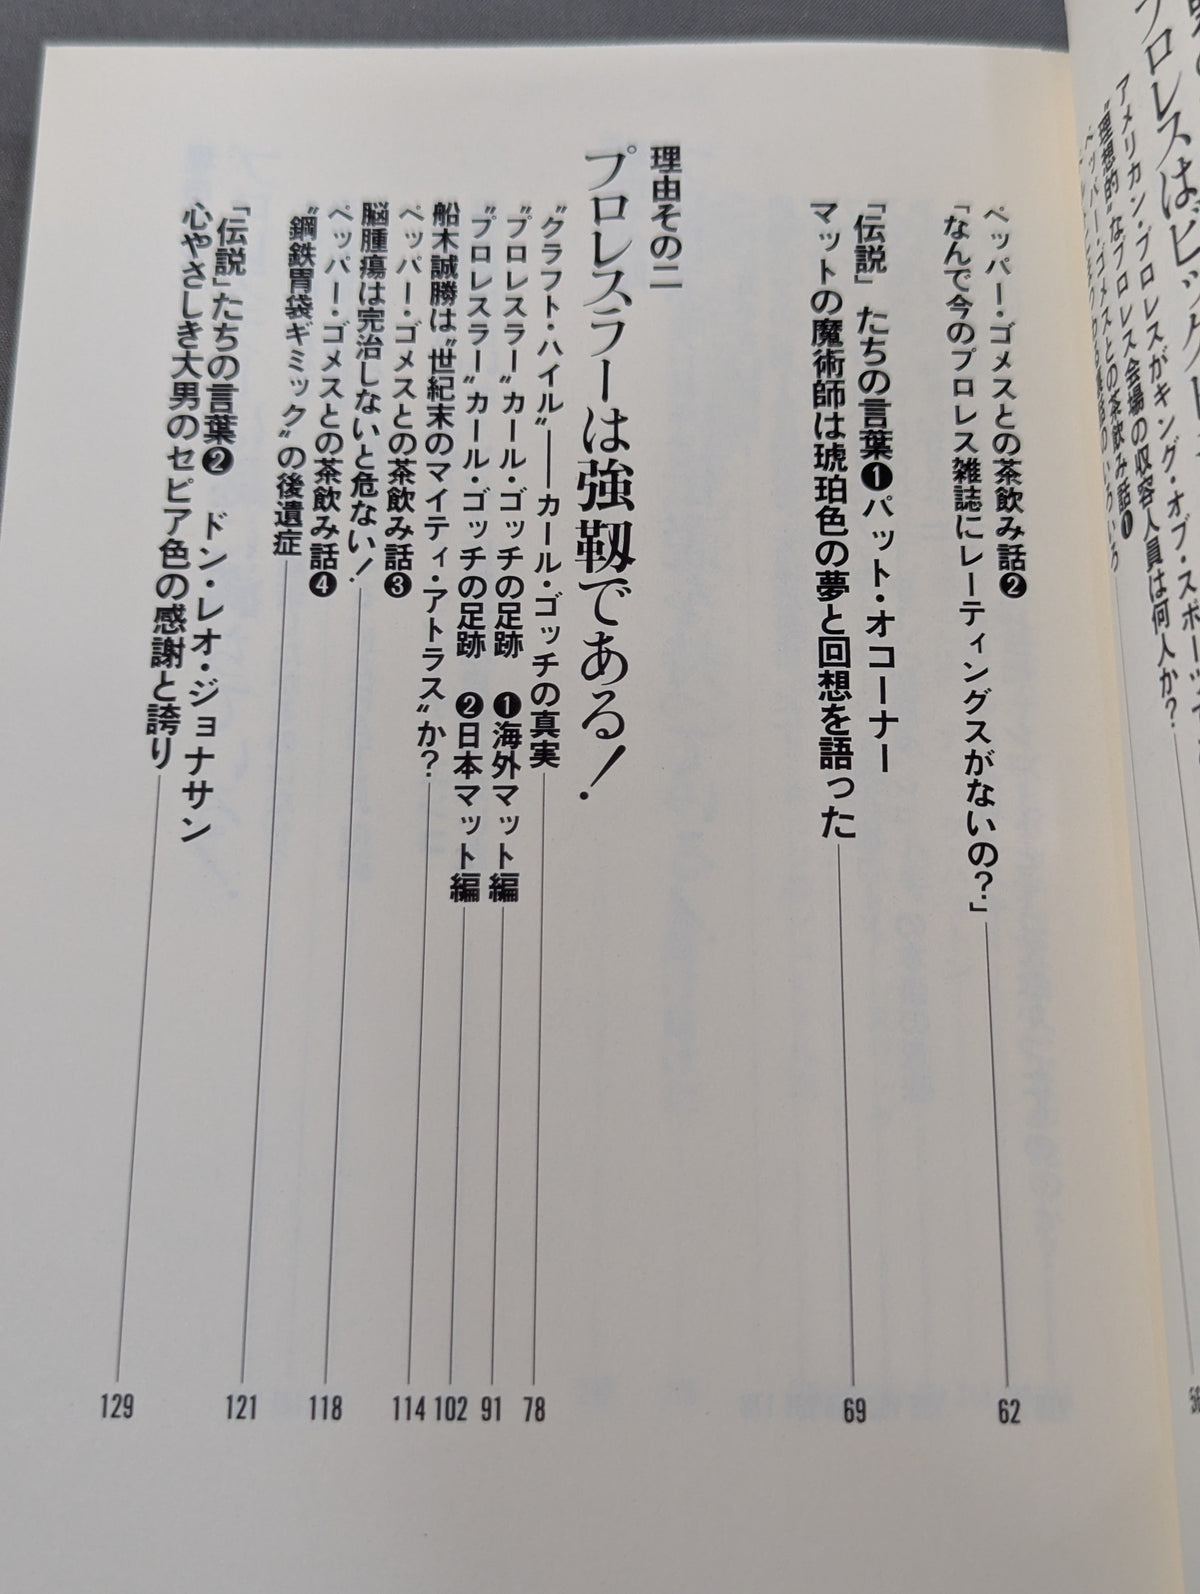 プロレスはビッグ
アメリカン・プロレスがキング・オブ・スポーツ
〝理想的〟なプロレス会場の収容人員は何人か?
56
ペッパー・ゴメスとの茶飲み話❶
ペッパー・ゴメスとの茶飲み話❷
「なんで今のプロレス雑誌にレーティングスがないの?」
62
「伝説」たちの言葉❶パット・オコーナー
マットの魔術師は琥珀色の夢と回想を語った
69
理由その二
プロレスラーは強靱である!
〝クラフト・ハイル〟――カール・ゴッチの真実
78
〝プロレスラー〟カール・ゴッチの足跡 ❶海外マット編
91
〝プロレスラー〟カール・ゴッチの足跡 ❷日本マット編
102
船木誠勝は〝世紀末のマイティ・アトラス〟か?
114
ペッパー・ゴメスとの茶飲み話❸
脳腫瘍は完治しないと危ない!
118
ペッパー・ゴメスとの茶飲み話❹
〝鋼鉄胃袋ギミック〟の後遺症
121
「伝説」たちの言葉❷ ドン・レオ・ジョナサン
心やさしき大男のセピア色の感謝と誇り
129